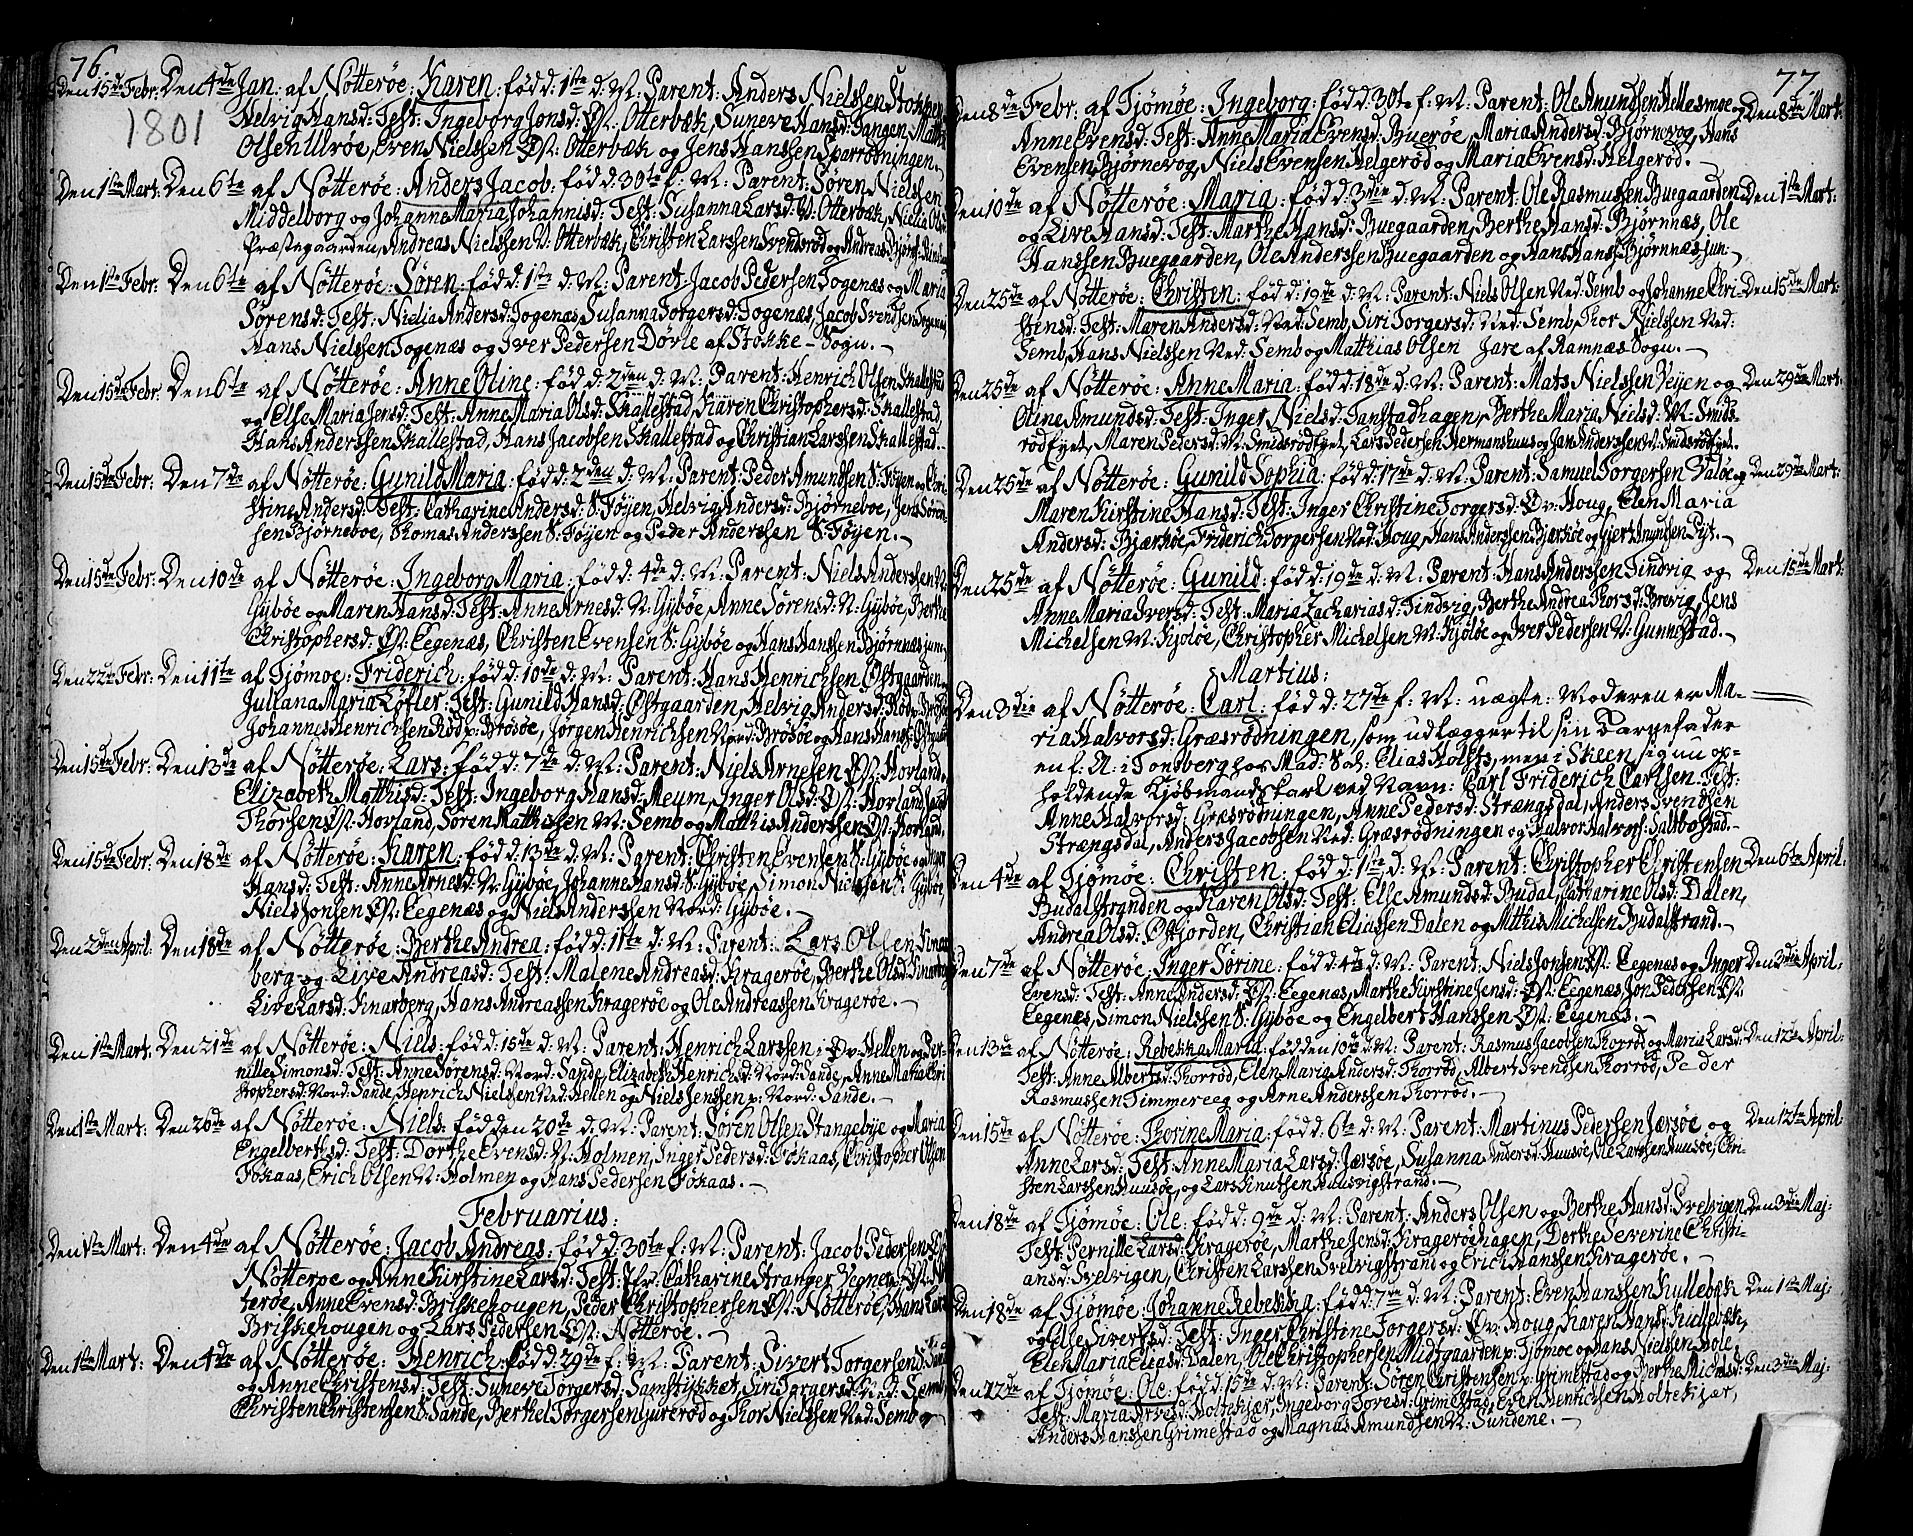 76.
Den 15de Febr: Den 4de Jan: af Nøtterøe: Karen: fød d: 1ste d: M: Parent: Anders Nielssen Stokken
1801 Helvig Hansd: Test: Ingeborg Jonsd: Øst: Otterbæk, Suneve Hansd: Tangen,
Olsen Ulrøe, Even Nielssen Øst: Otterbæk og Jens Hanssen Sparrødningen.
Den 1ste Mart: Den 6te af Nøtterøe: Anders Jacob: fød d: 30te f: M: Parent: Søren Nielssen
Middelborg og Johanne Maria Johannisd: Test: Susanna Larsd: V: Otterbæk, Nielia Olsd:
Præstegaarden, Andreas Nielssen V: Otterbæk, Christen Larssen Svendsrød og Andreas
Den 1ste Febr: Den 6te af Nøtterøe: Søren: fød d: 1ste d: M: Parent: Jacob Pedersen Togenæs og Maria
Sørensd: Test: Nielia Andersd: Togenæs, Susanna Torgersd: Togenæs, Jacob Svendsen Togenæs,
Hans Nielssen Togenæs og Iver Pedersen Dørle af Stokke-Sogn.
Den 15de Febr: Den 6te af Nøtterøe: Anne Oline: fød d: 2den d: M: Parent: Henrich Olsen Skallestad
og Else Maria Jensd: Test: Anne Maria Olsd: Skallestad, Karen Christophersd: Skallestad,
Hans Anderssen Skallestad, Hans Jacobsen Skallestad og Christian Larssen Skallestad.
Den 15de Febr: Den 7de af Nøtterøe: Gunild Maria: fød d: 2den d: M: Parent: Peder Amundsen S: Føyen og Chri-
stine Andersd: Test: Catharine Andersd: S: Føyen, Helvig Andersd: Bjørneboe, Jens Søren-
sen Bjørneboe, Thomas Anderssen S: Føyen og Peder Anderssen S: Føyen.
Den 15de Febr: Den 10de af Nøtterøe: Ingeborg Maria: fød d: 4de d: M: Parent: Niels Anderssen N:
Gybøe og Maren Hansd: Test: Anne Arnesd: N: Gybøe, Anne Sørensd: N: Gybøe, Berthe
Christophersd: Øst: Eegenæs, Christen Evensen S: Gybøe og Hans Hanssen Bjørnnæs jun:
Den 22de Febr: Den 11te af Tjømøe: Friderich: fød d: 10de d: M: Parent: Hans Henrichsen Østgaarden
Juliana Maria Løfler: Test: Gunild Hansd: Østgaarden, Helvig Andersd: Rød p: Brøsøe
Johannes Henrichsen Rød p: Brøsøe, Jørgen Henrichsen Nord: Brøsøe og Hans Hanss:
Den 15de Febr: Den 13de af Nøtterøe: Lars: fød d: 7de d: M: Parent: Niels Arnesen Øst: Hovland
Elizabeth Matthisd: Test: Ingeborg Hansd: Meum, Inger Olsd: Øst: Hovland,
Thorsen Øst: Hovland, Søren Matthissen V: Semb og Matthis Anderssen Øst: Hovland,
Den 15de Febr: Den 18de af Nøtterøe: Karen: fød d: 13de d: M: Parent: Christen Evensen S: Gybøe og Inger
Hansd: Test: Anne Arnesd: N: Gybøe, Johanne Hansd: S: Gybøe, Simon Nielssen S: Gybøe,
Niels Jonsen Øst: Eegenæs og Niels Anderssen Nord: Gybøe.
Den 2den April: Den 18de af Nøtterøe: Berthe Andrea: fød d: 11te d: M: Parent: Lars Olsen Kinar-
berg og Live Andreasd: Test: Malene Andreasd: Kragerøe, Berthe Olsd: Kinarberg
Live Larsd: Kinarberg, Hans Andreassen Kragerøe og Ole Andreassen Kragerøe.
Den 1ste Mart: Den 21de af Nøtterøe: Niels: fød d: 15de d: M: Parent: Henrich Larssen i Øv: Hellen og Per-
nille Simonsd: Test: Anne Sørensd: Nord: Sande, Elizabeth Henrichsd: Nord: Sande, Anne Maria Chri-
stophersd: Nord: Sande, Henrich Nielssen Ned: Hellen og Niels Jenssen p: Nord: Sande.
Den 1ste Mart: Den 26de af Nøtterøe: Niels: fød den 20de d: M: Parent: Søren Olsen Stangebye og Maria
Engelberthsd: Test: Dorthe Evensd: N: Holmen, Inger Pedersd: Fokaas, Christopher Olsen
Fokaas, Erich Olsen N: Holmen og Hans Pedersen Fokaas.
Februarius:
Den 1ste Mart: Den 4de af Nøtterøe: Jacob Andreas: fød d: 30te f: M: Parent: Jacob Pedersen Øst:
Nøtterøe og Anne Kirstine Larsd: Test: Catharine Stranger Vegner, Øst: Nøt-
terøe, Anne Evensd: Briskehougen, Peder Christophersen Øst: Nøtterøe, Hans Larss:
Briskehougen og Lars Pedersen Øst: Nøtterøe.
Den 1ste Mart: Den 4de af Nøtterøe: Henrich: fød d: 29de f: M: Parent: Sivert Torgersen S: Sande
og Anne Christensd: Test: Sunevi Torgersd: Samstikket, Siri Torgersd: Ned: Semb,
Christen Christensen S: Sande, Berthel Torgersen Gurerød og Thor Nielssen Ned: Semb
77.
Den 8de Febr: af Tjømøe: Ingeborg: fød d: 30te f: M: Parent: Ole Anundsen Hellasmoe og Den 8de Mart:
Anne Evensd: Test: Anne Maria Evensd: Buerøe, Maria Andersd: Bjørnevog, Hans
Evensen Bjørnevog, Niels Evensen Helgerød og Maria Evensd: Helgerød.
Den 10de af Nøtterøe: Maria: fød d: 3die d: M: Parent: Ole Rasmussen Buegaarden Den 1ste Mart:
og Live Hansd: Test: Marthe Hansd: Buegaarden, Berthe Hansd: Bjørnnæs, Ole
Hanssen Buegaarden, Ole Anderssen Buegaarden og Hans Hanss: Bjørnnæs jun:
Den 25de af Nøtterøe: Christen: fød d: 19de d: M: Parent: Niels Olsen Ned: Semb og Johanne Chri- Den 15de Mart:
stensd: Test: Maren Andersd: Ned: Semb, Siri Torgersd: Ned: Semb, Thor Nielssen Ned:
Semb, Hans Nielssen Ned: Semb og Matthias Olsen Jare af Ramnæs Sogn.
Den 25de af Nøtterøe: Anne Maria: fød d: 18de d: M: Parent: Mats Nielssen Veyen og Den 29de Mart:
Oline Amundsd: Test: Inger Nielsd: Tanstadhagen, Berthe Maria Nielsd: V: Smids-
rød Eyet, Maren Pedersd: V: Smidsrød Eyet, Lars Pedersen Hermanshuus og Jan Anderssen V: Smidsrød Eyet.
Den 25de af Nøtterøe: Gunild Sophia: fød d: 17de d: M: Parent: Samuel Torgersen Valøe og Den 29de Mart:
Maren Kirstine Hansd: Test: Inger Christine Torgersd: Øv: Houg, Elen Maria
Andersd: Bjærkøe, Friderich Torgersen Ned: Houg, Hans Anderssen Bjærkøe og Gjert Anundsen Pyt.
Den 25de af Nøtterøe: Gunild: fød d: 19de d: M: Parent: Hans Anderssen Tindvig og Den 15de Mart:
Anne Maria Iversd: Test: Maria Zachariasd: Tindvig, Berthe Andrea Thorsd: Brevig, Jens
Michelsen V: Kjøløe, Christopher Michelsen V: Kjøløe og Iver Pedersen V: Gunnestad.
Martius:
Den 3die af Nøtterøe: Carl: fød d: 27de f: M: uægte: Moderen er Ma-
ria Halvorsd: Græsrødningen, som udlægger til sin Barnefader
en f: A: i Tønsberg hos Mad: Sal: Elias Holsts, men i Skeen sig nu op-
holdende Kjøbmandskarl ved Navn: Carl Friderich Carlsen. Test:
Anne Halvorsd: Græsrødningen, Anne Pedersd: Strængsdal, Anders Svendsen
Strængsdal, Anders Jacobsen Ned: Græsrødningen og Halvor Halvors: Saltbostad.
Den 4de af Tjømøe: Christen: fød d: 1ste d: M: Parent: Christopher Christensen Den 6te April:
Budalstranden og Karen Olsd: Test: Else Amundsd: Budal, Catharine Olsd: Dalen,
Andrea Olsd: Østjorden, Christian Eliassen Dalen og Mtthis Michelsen Budalstrand.
Den 7de af Nøtterøe: Inger Sørine: fød d: 4de d: M: Parent: Niels Jonsen Øst: Eegenæs og Inger Den 3die April:
Evensd: Test: Anne Andersd: Øst: Eegenæs, Marthe Kirstine Jensd: Øst: Eegenæs, Jon Pedersen Øst:
Eegenæs, Simon Nielssen S: Gybøe og Engelbert Hanssen Øst: Eegenæs.
Den 13de af Nøtterøe: Rebekka Maria: fød den 10de d: M: Parent: Rasmus Jacobsen Thorrød og Maria Larsd: Den 12te April:
Test: Anne Albertsd: Thorrød, Elen Maria Andersd: Thorrød, Albert Svendsen Thorrød, Peder
Rasmussen Timmereeg og Arne Anderssen Thorrød.
Den 15de af Nøtterøe: Thorine Maria: fød d: 6te d: M: Parent: Martinus Pedersen Jærsøe og Den 12te April
Anne Larsd: Test: Anne Maria Larsd: Jærsøe, Susanna Andersd: Huusøe, Ole Larssen Huusøe, Chri-
sten Larssen Huusøe, og Lars Knutsen Huusvigstrand.
Den 18de af Tjømøe: Ole: fød d: 9de d: M: Parent: Anders Olsen og Berthe Hansd: Svelvigen Den 3die Maj:
Test: Pernille Larsd: Kragerøe, Marthe Jensd: Kragerøehagen, Dorthe Severine Christi-
ansd: Svelvigen, Christen Larssen Svelvigstrand og Erich Hanssen Kragerøe.
Den 18de af Tjømøe: Johanne Rebekka: fød d: 7de d: M: Parent: Even Hanssen Kullebæk Den 1ste Maj:
og Else Sivertsd: Test: Inger Christine Torgersd: Øv: Houg, Karen Hansd: Kullebæk,
Elen Maria Eliasd: Dalen, Ole Christophersen Midtgaarden p: Tjømøe og Hans Nielssen Hole.
Den 22de af Tjømøe: Ole: fød d: 15de d: M: Parent: Søren Christensen p: Grimestad og Berthe Michelsd: Den 3die Maj:
Test: Maria Arvesd: Holtekjær, Ingeborg Toresd: Grimestad, Even Henrichsen Holtekjær,
Anders Hanssen Grimestad og Magnus Amundsen N: Sundene.